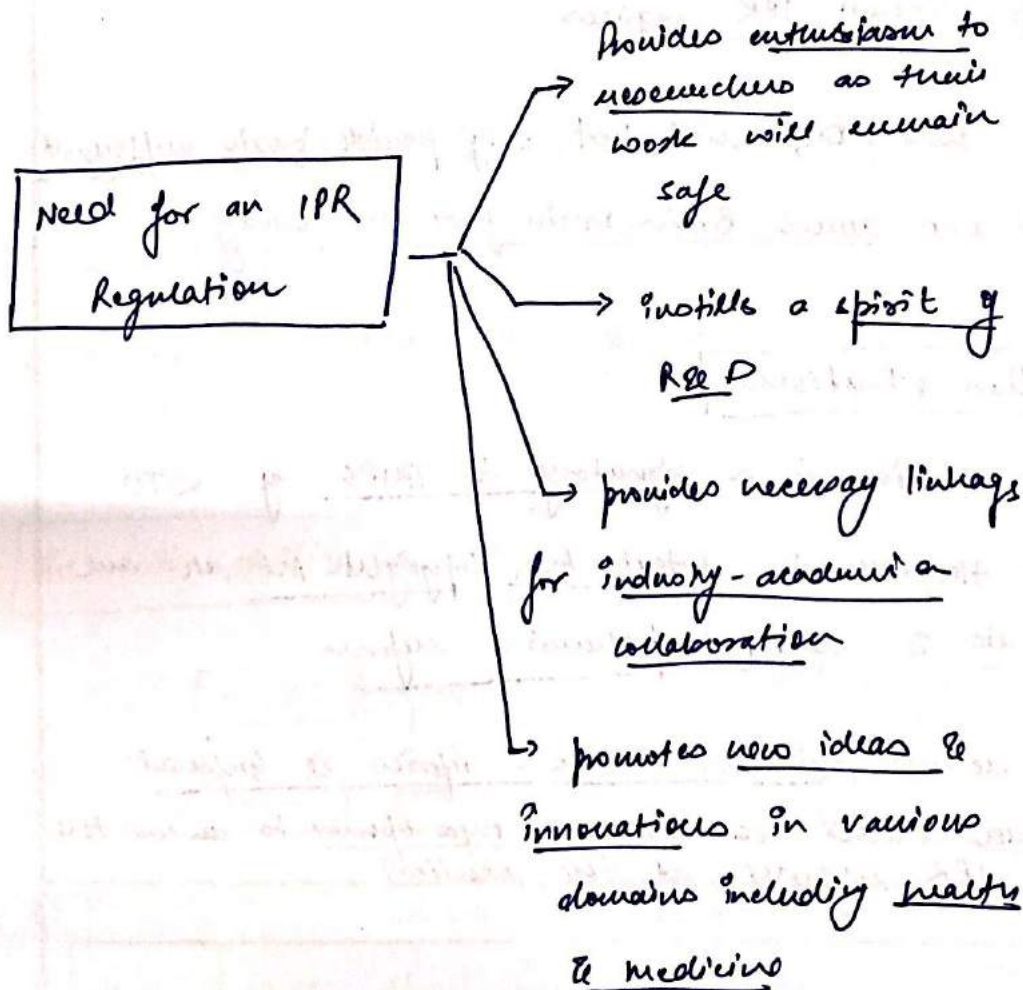 Need for an IPR
Regulation
Provides enthusiasm to
researchers as their
work will remain
safe
instills a spirit of
R & D
provides necessay linkags
for industry-academia
collaboration
promotes new ideas &
innovations in various
domains including health
& medicine